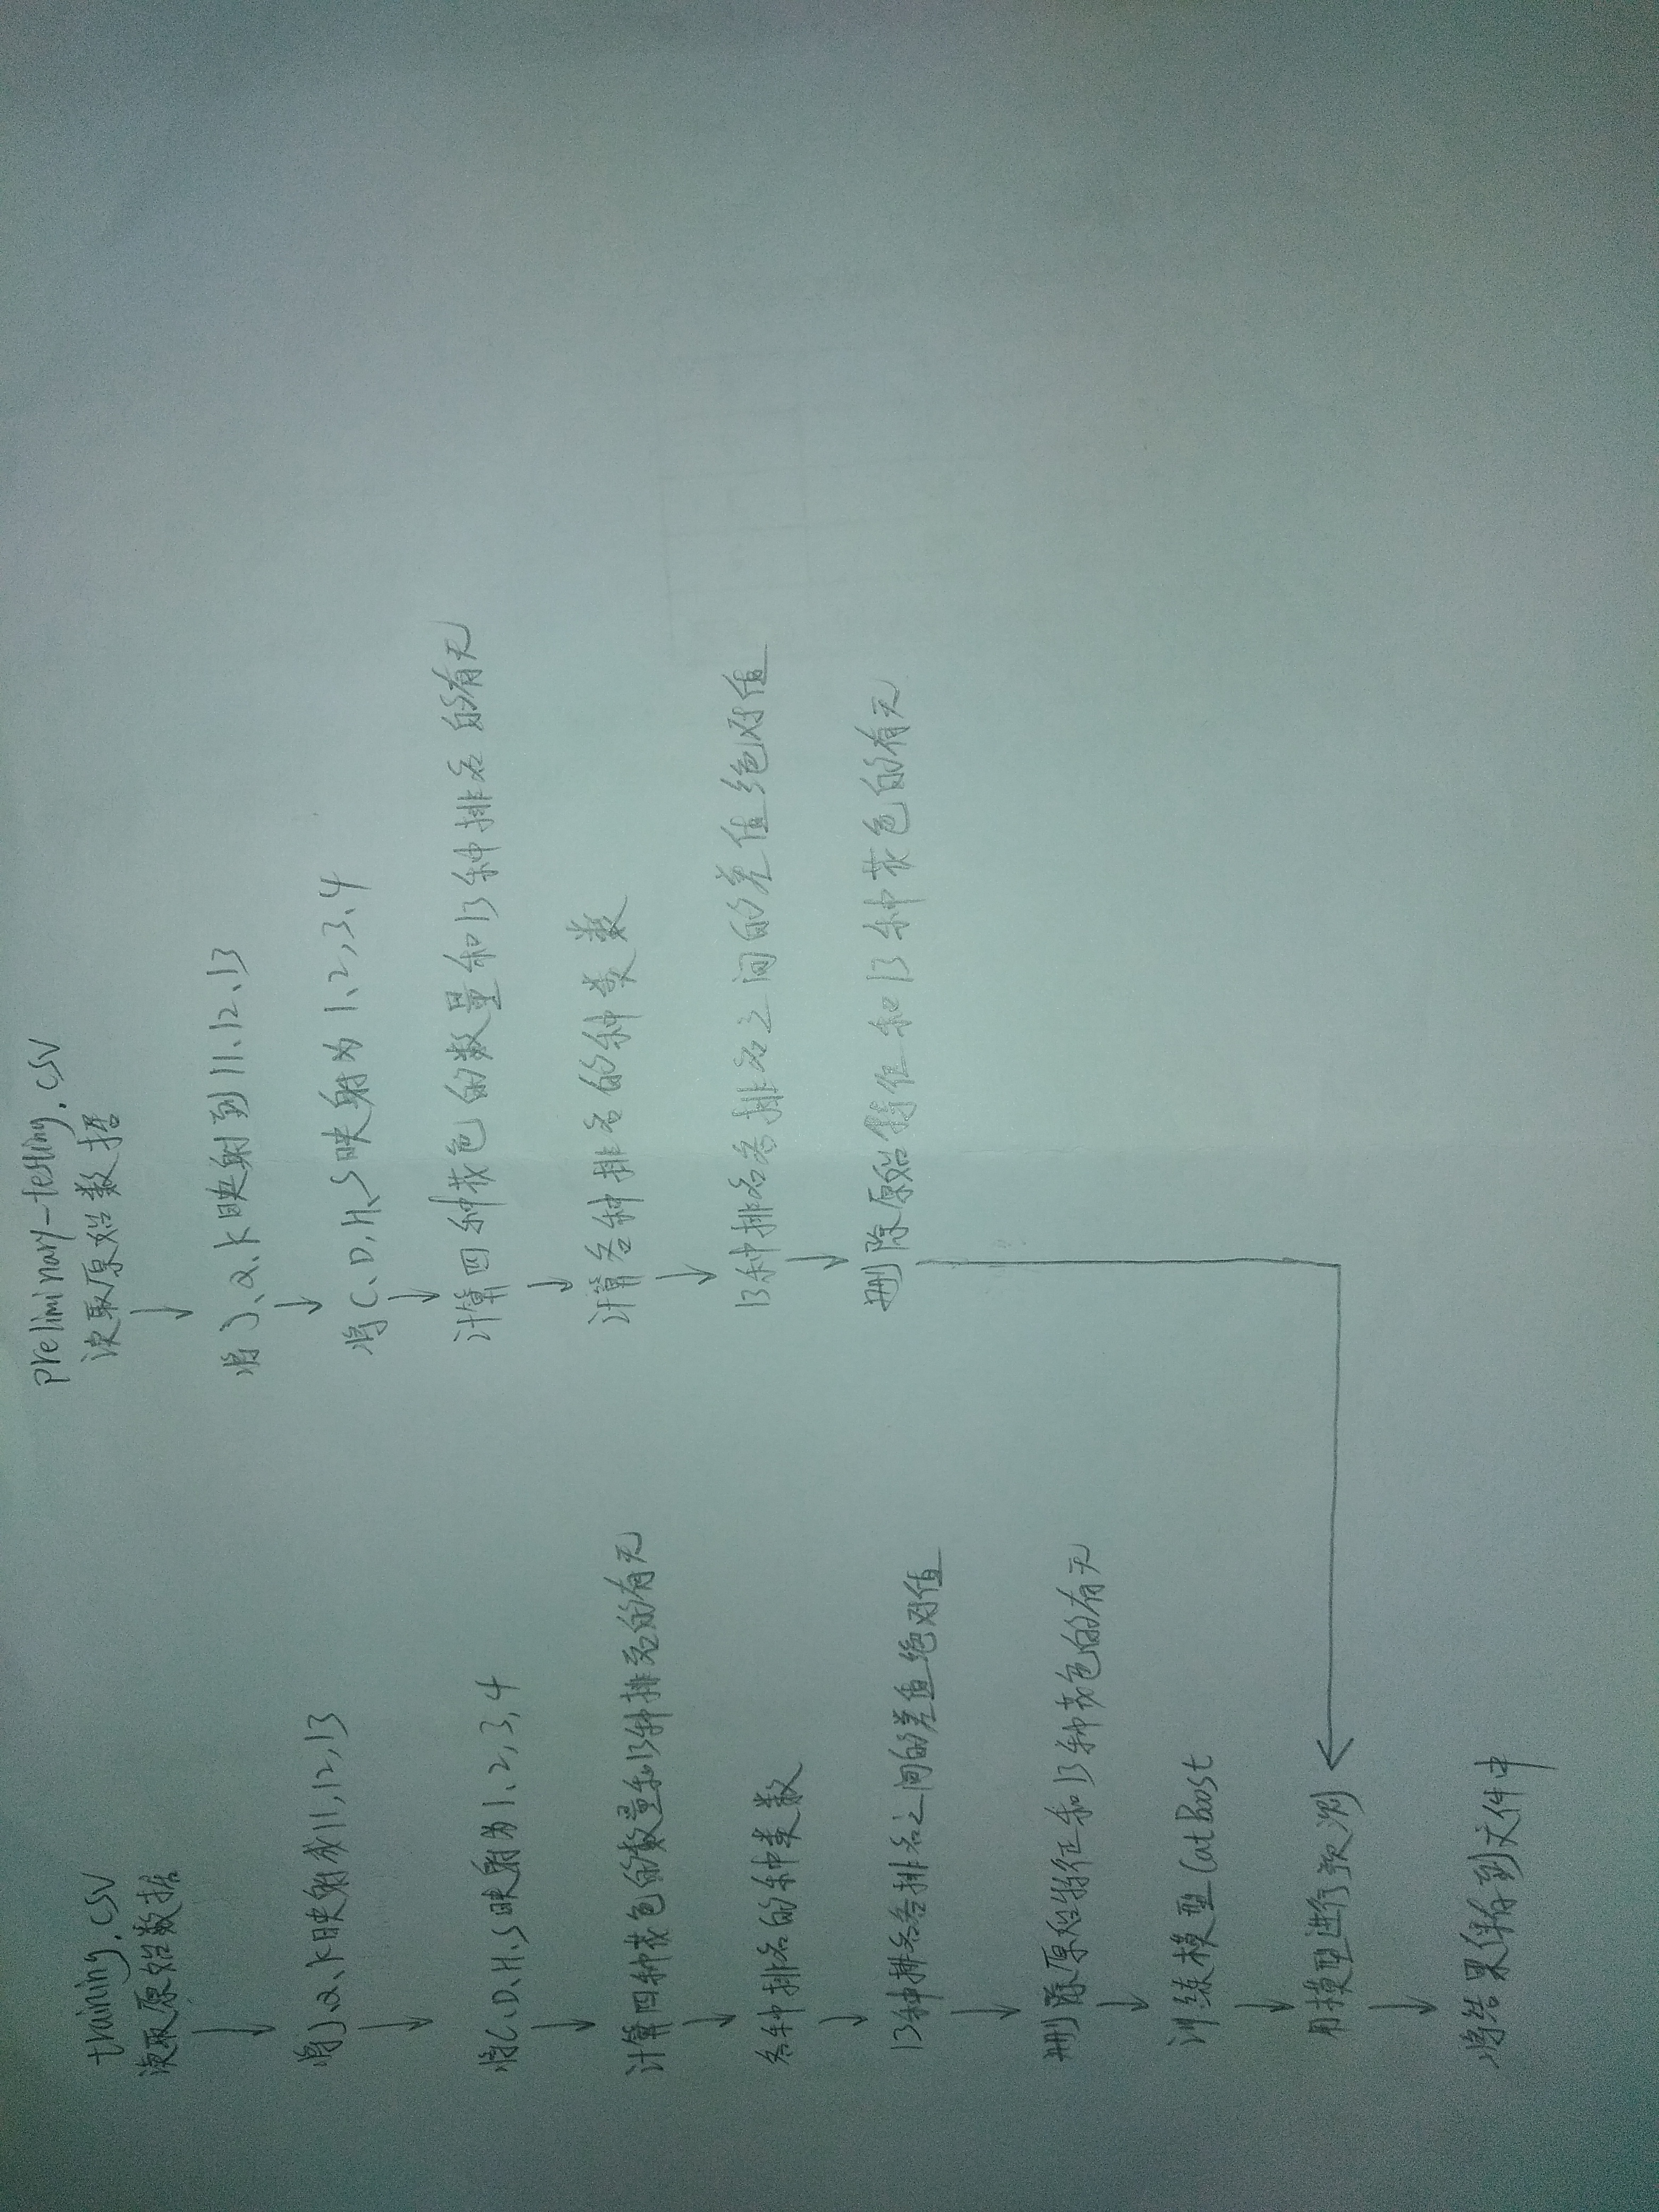 training.csv
读取原始数据
将J、Q、K映射成11,12,13
将C、D、H、S映射为1、2,3,4
计算四种花色的数量和13种排名的有无
各种排名的种类数
13种排名各排名之间的差值绝对值
删除原始特征和13种花色的有无
训练模型CatBoost
用模型进行预测
将结果保存到文件中
preliminary-testing.csv
读取原始数据
将J、Q、K映射到11、12、13
将C、D,H、S映射为1、2,3、4
计算四种花色的数量和13种排名的有无
计算各种排名的种类数
13种排名各排名之间的差值绝对值
删除原始特征和13种花色的有无